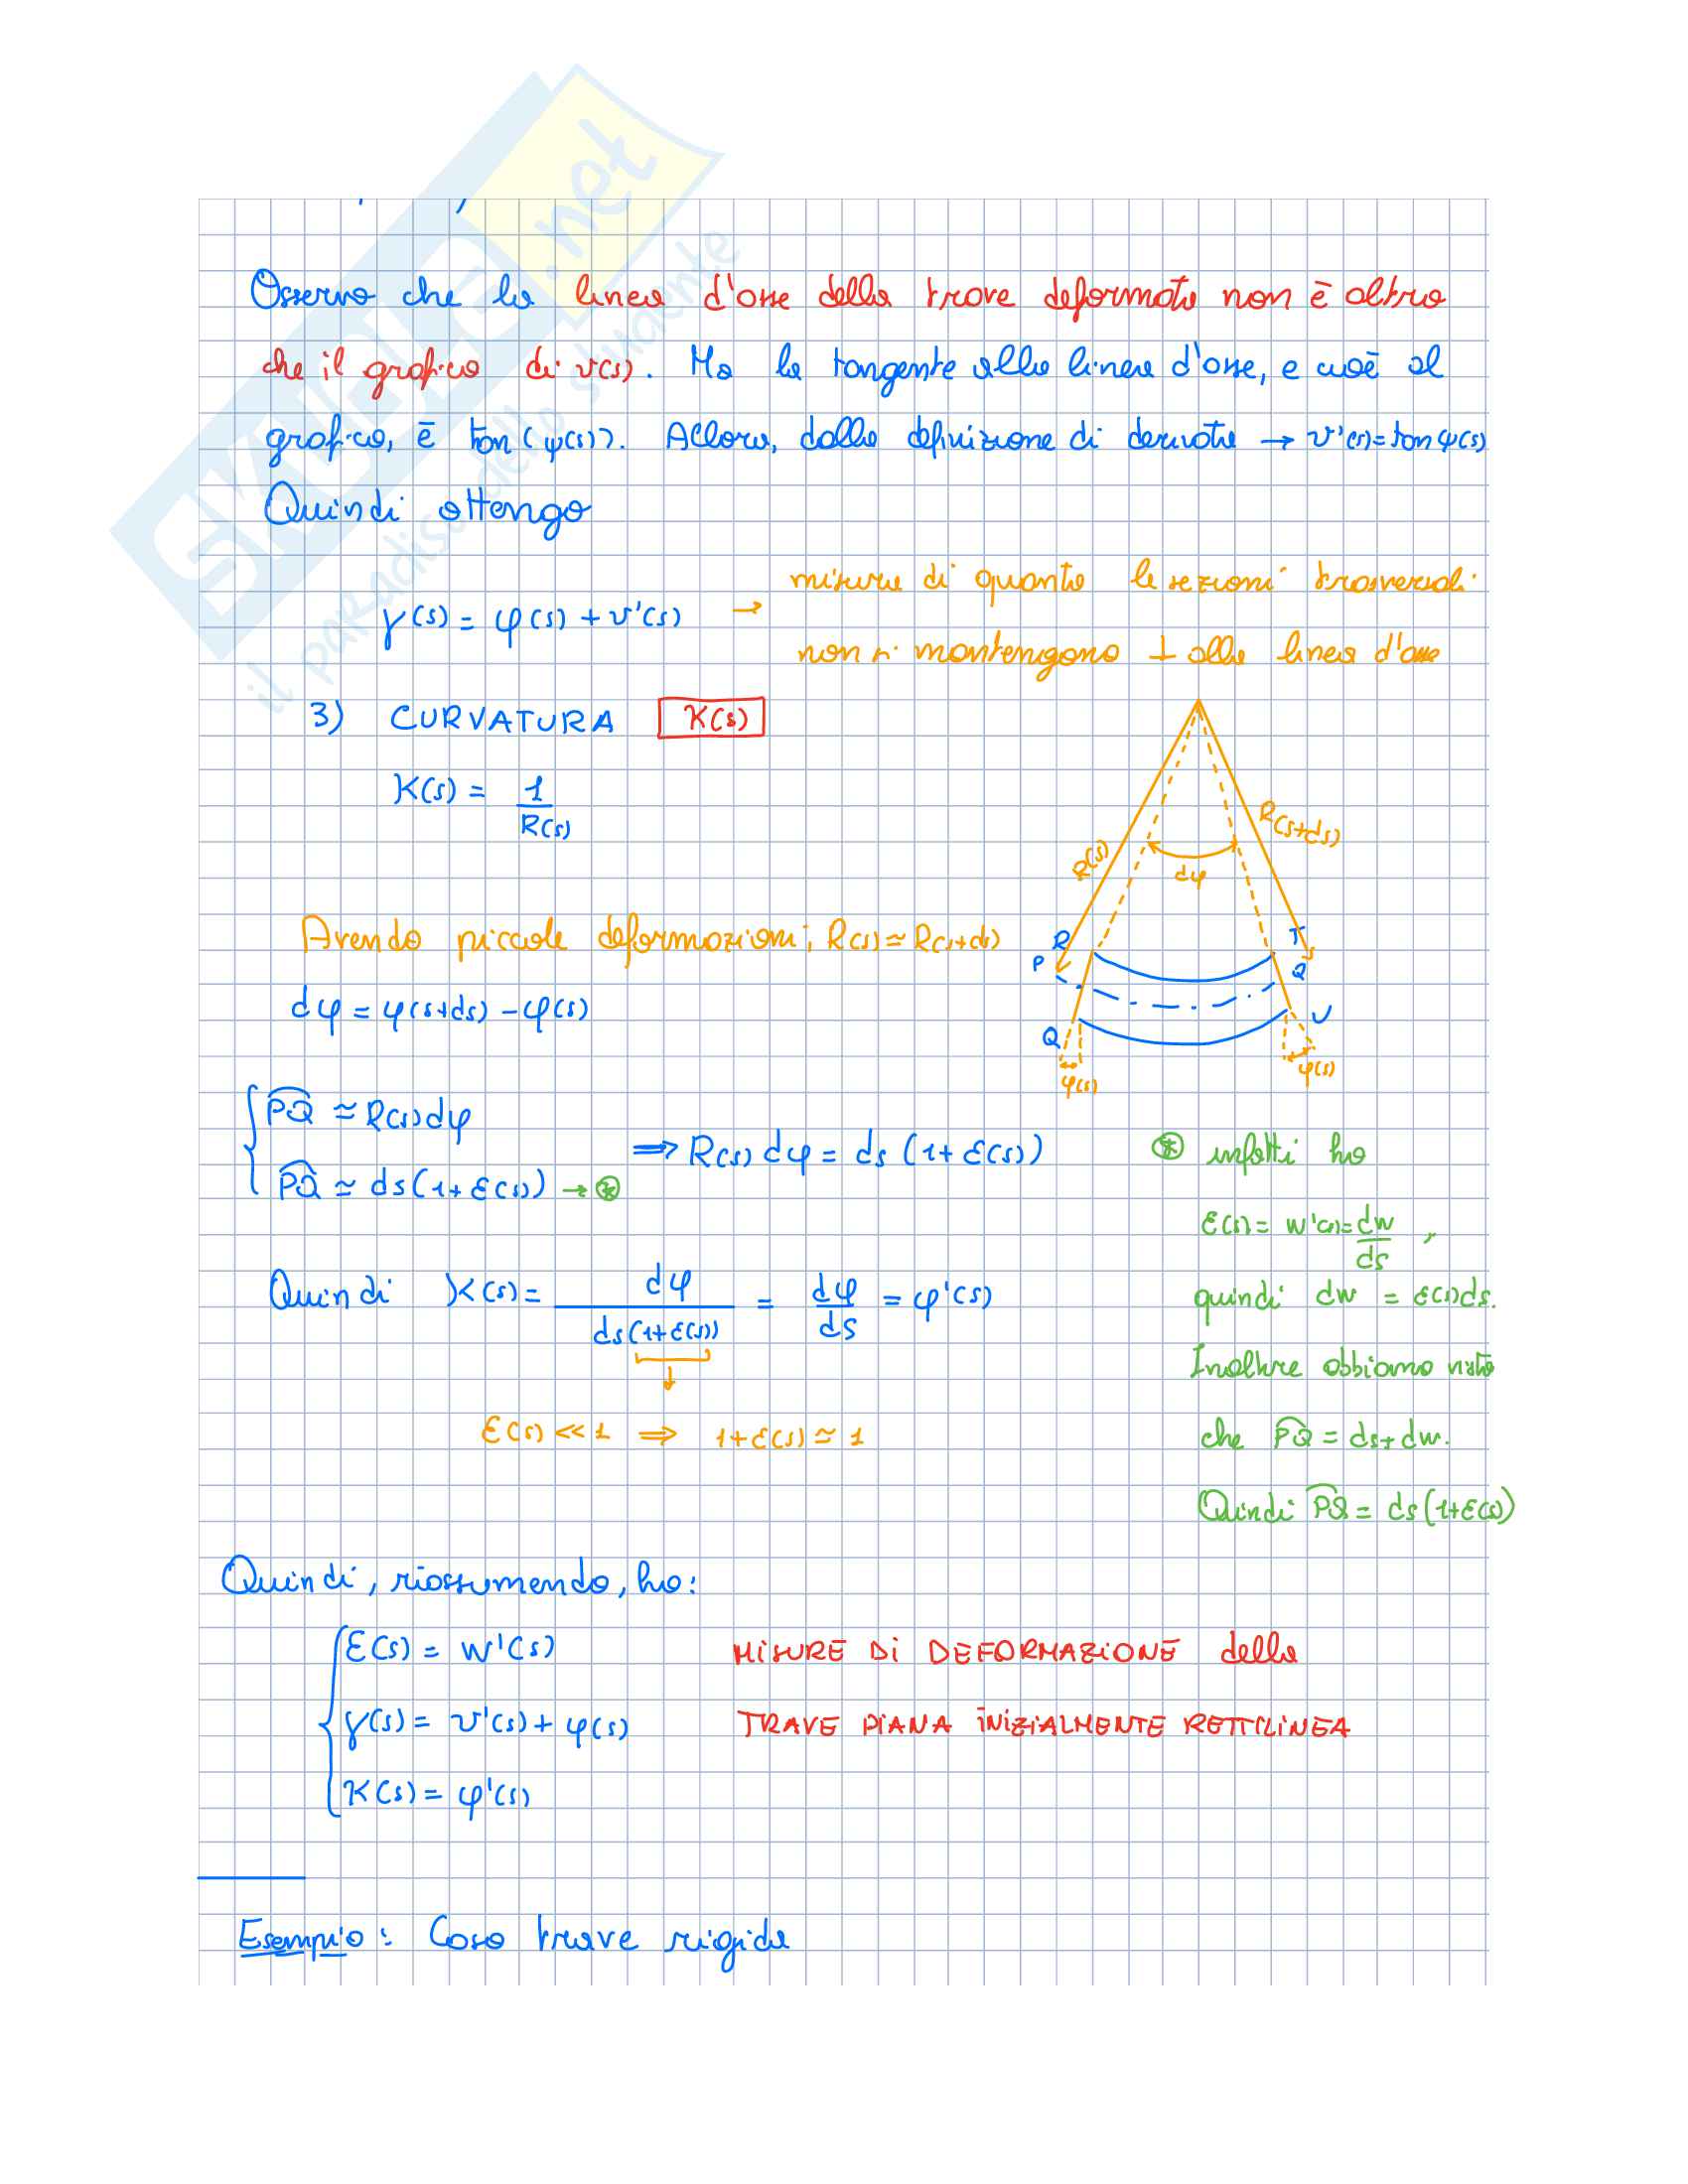 SKUOLA.net
il paradiso dello studente
Osservo che la linea d'asse della trave deformata non è altro
che il grafico di v(s). Ma la tangente alla linea d'asse, e cioè al
grafico, è tan(ψ(s)). Allora, dalla definizione di derivata → v'(s)=tanψ(s)
Quindi ottengo
γ(s) = φ(s) + v'(s) → misura di quanto le sezioni trasversali
non si mantengono ⊥ alla linea d'asse
3) CURVATURA K(s)
K(s) = 1/R(s)
R(s)
R(s+ds)
dφ
Avendo piccole deformazioni, R(s) ≃ R(s+ds)
R
T
P
Q
dφ = φ(s+ds) - φ(s)
Q
U
φ(s)
φ(s)
PQ ≃ R(s)dφ
PQ ≃ ds(1+ε(s)) → ⊛
⟹ R(s)dφ = ds(1+ε(s))
⊛ infatti ho
ε(s) = w'(s) = dw/ds,
quindi dw = ε(s)ds.
Inoltre abbiamo visto
che PQ = ds+dw.
Quindi PQ = ds(1+ε(s))
Quindi K(s) = dφ/ds(1+ε(s)) = dφ/ds = φ'(s)
ε(s) << 1 ⟹ 1+ε(s) ≃ 1
Quindi, riassumendo, ho:
ε(s) = w'(s)
γ(s) = v'(s) + φ(s)
K(s) = φ'(s)
MISURE DI DEFORMAZIONE della
TRAVE PIANA INIZIALMENTE RETTILINEA
Esempio: Caso trave rigida